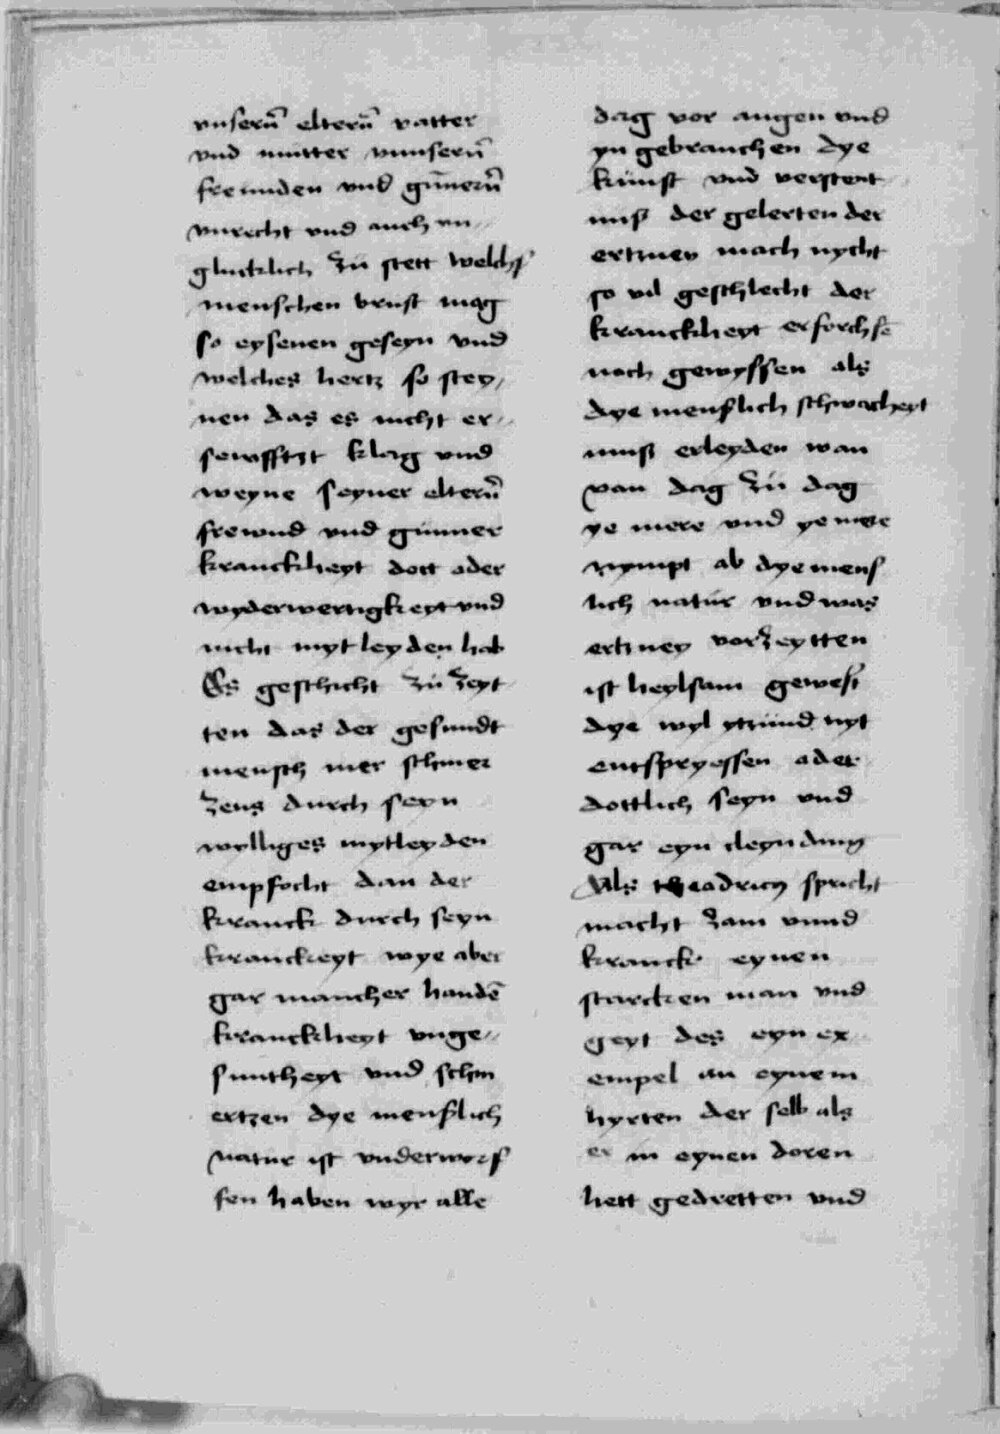 vnserñ elterñ vatter
vnd mutter vnnserñ
freunden vnd gũnnerñ
vnrecht vnd auch vn„
glucklich zu stett welchs
menschen brust mag
so eysenen geseyn vnd
welches hertz so stey„
nen das es nicht er„
sewfftzt klag vnd
weyne seyner elterñ
frewnd vnd gunner
kranckheyt dott oder
wyderwertigkeyt vnd
nicht mytleyden hab
Es geschicht zu zeyt
ten das der gesundt
mensch mer schmer
zens durch seyn
wylliges mytleyden
empfocht dan der
kranck durch seyn
kranckeyt wye aber
gar mancher handē
kranckheyt vnge„
suntheyt vnd schm
ertzen dye menslich
natur ist vnderworf
fen haben wyr alle
dag vor augen vnd
yn gebrauchen dye
kunst vnd verstent
nus der gelerten der
ertzney mach nycht
so vil geschlecht der
kranckheyt erforchsē
noch gewyssen als
dye menslich schwacheyt
mus erleyden wan
van dag zu dag
ye mere vnd ye mere
nympt ab dye mens
lich natur vnd was
ertzney vorzeytten
ist heylsam gewest
dye wyl ytzund nyt
entspryessen oder
dottlich seyn vnd
gar eyn cleyn ding
Als theadricus spricht
macht zam vnnd
kranck eynen
starcken man vnd
geyt des eyn ex
empel an eynem
hyrten der selb als
er in eynen doren
hett gedretten vnd